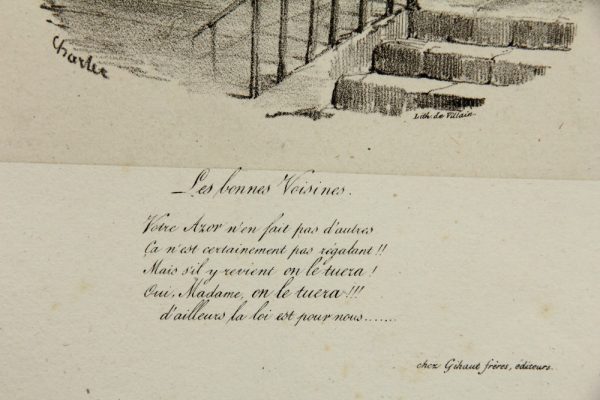 Charlet
Lith. de Villain.
Les bonnes Voisines.
Votre Azor n'en fait pas d'autres
Ça n'est certainement pas régalant !!
Mais s'il y revient on le tuera !
Oui, Madame, on le tuera !!!
d'ailleurs, la loi est pour nous.......
chez Gihaut frères, éditeurs.